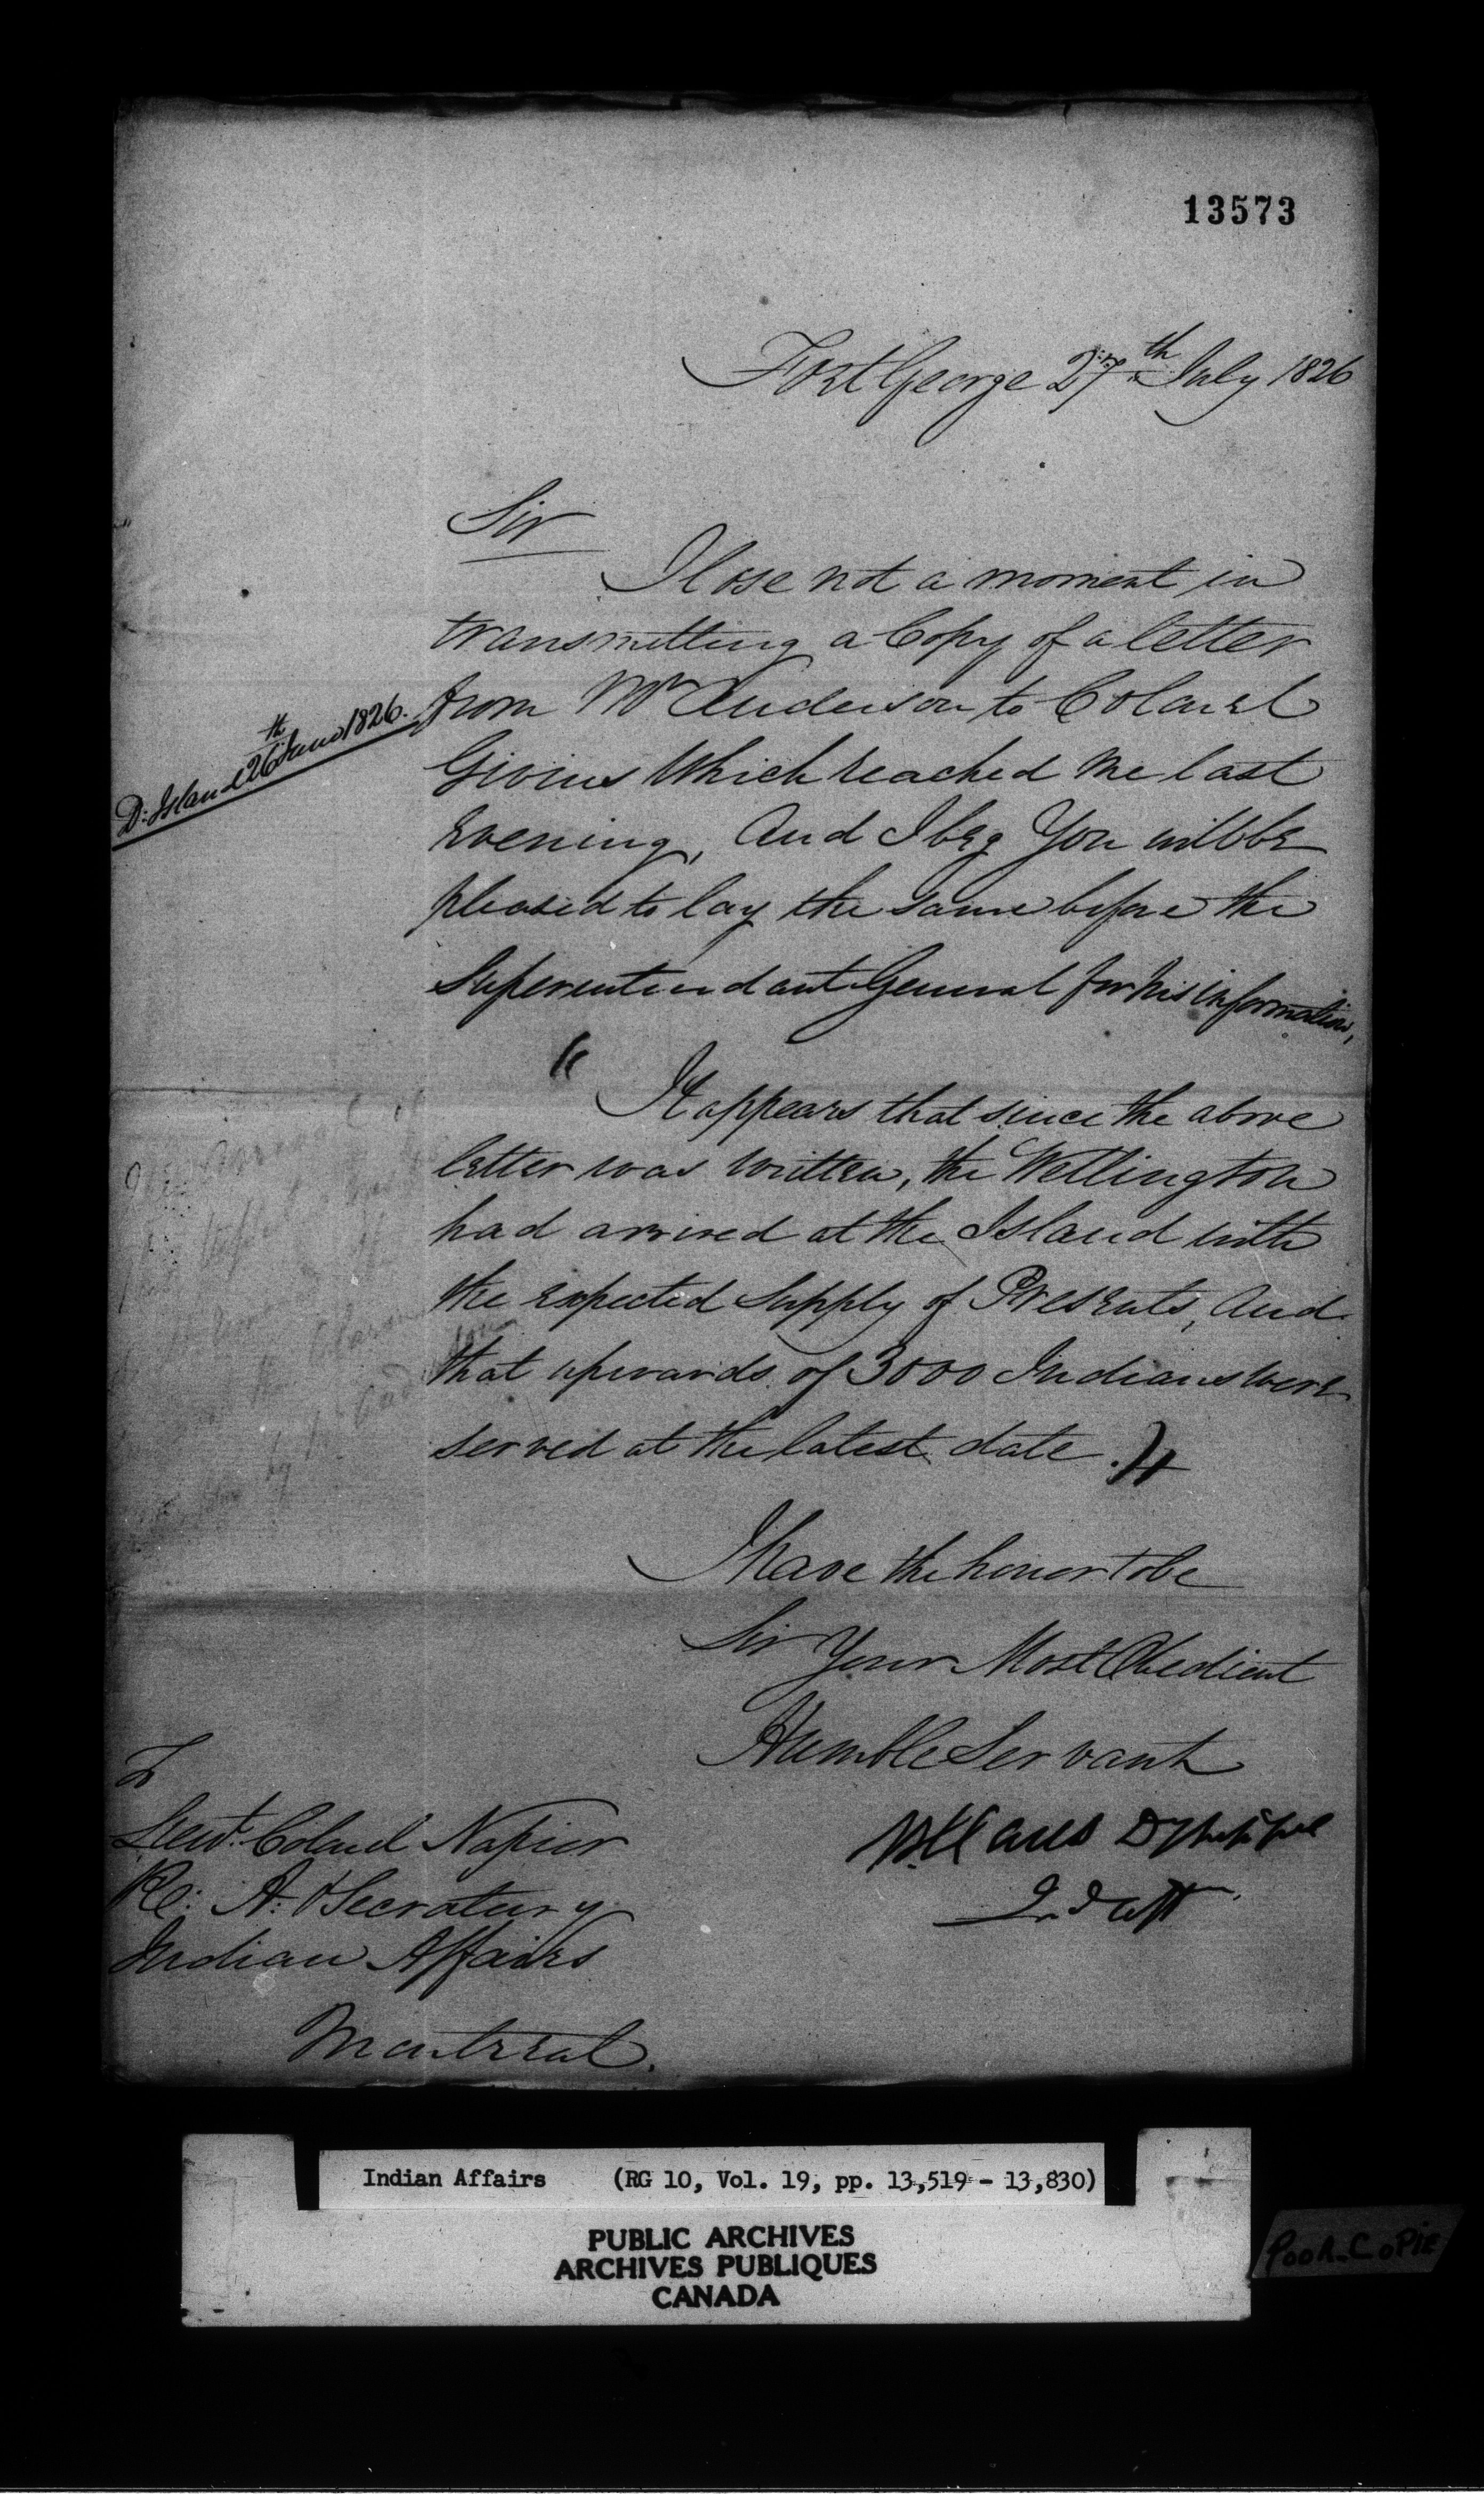 13573
Fort George 27th July 1826
Sir
I lose not a moment in
transmitting a Copy of a letter
from Mr Anderson to Colonel
D: Island 26th June 1826.
Givins Which reached me last
Evening, And I beg You will be
pleased to lay the same before the
Superintendant General for his information,
"It appears that since the above
letter was written, the Wellington
had arrived at the Island with
the expected Supply of Presents, And
that upwards of 3000 Indians were
served at the latest date."
I have the honor to be
Sir Your Most Obedient
Humble Servant
To
Lieut. Colonel Napier
Re: A: & Secratury
Indian Affairs
Montreal.
Indian Affairs (RG 10, Vol. 19, pp. 13,519 - 13,830)
PUBLIC ARCHIVES
ARCHIVES PUBLIQUES
CANADA
POOR COPIE